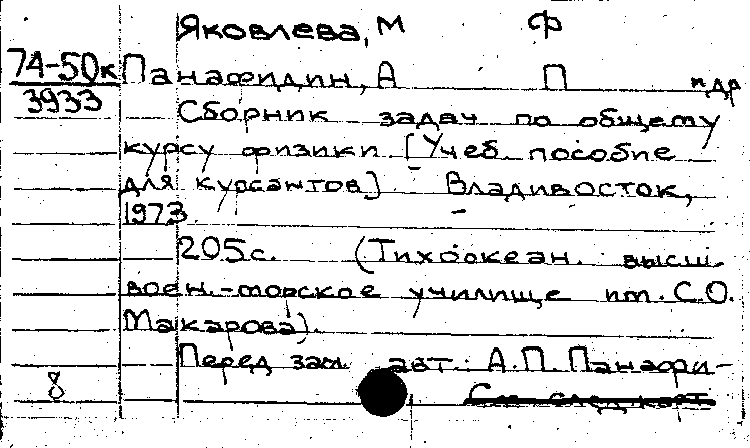 Яковлева, М Ф
74-50к Панафидин, А П и др
3933
Сборник задач по общему
курсу физики [Учеб. пособие
для курсантов] - Владивосток,
1973.
205с. (Тихоокеан. высш.
воен.-морское училище им. С.О.
Макарова).
Перед заг. авт.: А.П. Панафи-
8 См след карт